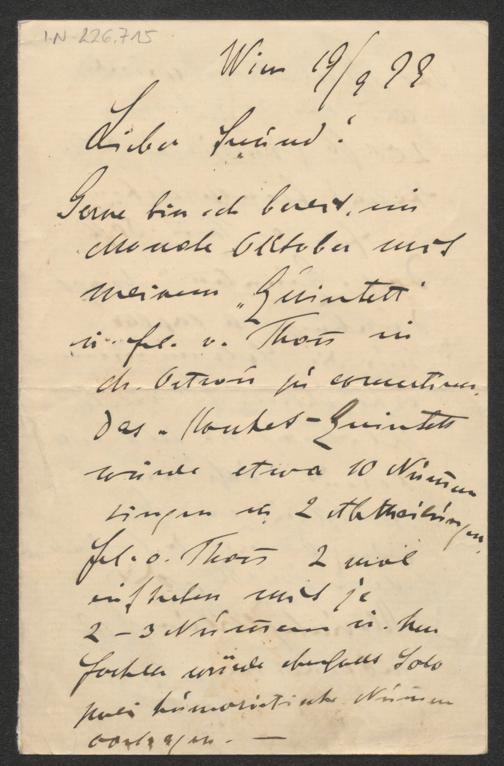 I.N. 226.715
Wien 19/9 98
Lieber Freund!
Gerne bin ich bereit, im
Monate Oktober mit
meinem „Quintett"
u. frl. v. Thann in
M. Ostrau zu concertiren.
Das „Udel-Quintett
würde etwa 10 Nummern
singen in 2 Abtheilungen,
frl. v. Thann 2 mal
auftreten mit je
2-3 Nummern u. Herr
würde ebenfalls Solo
zwei humoristische Nummern
vortragen. —